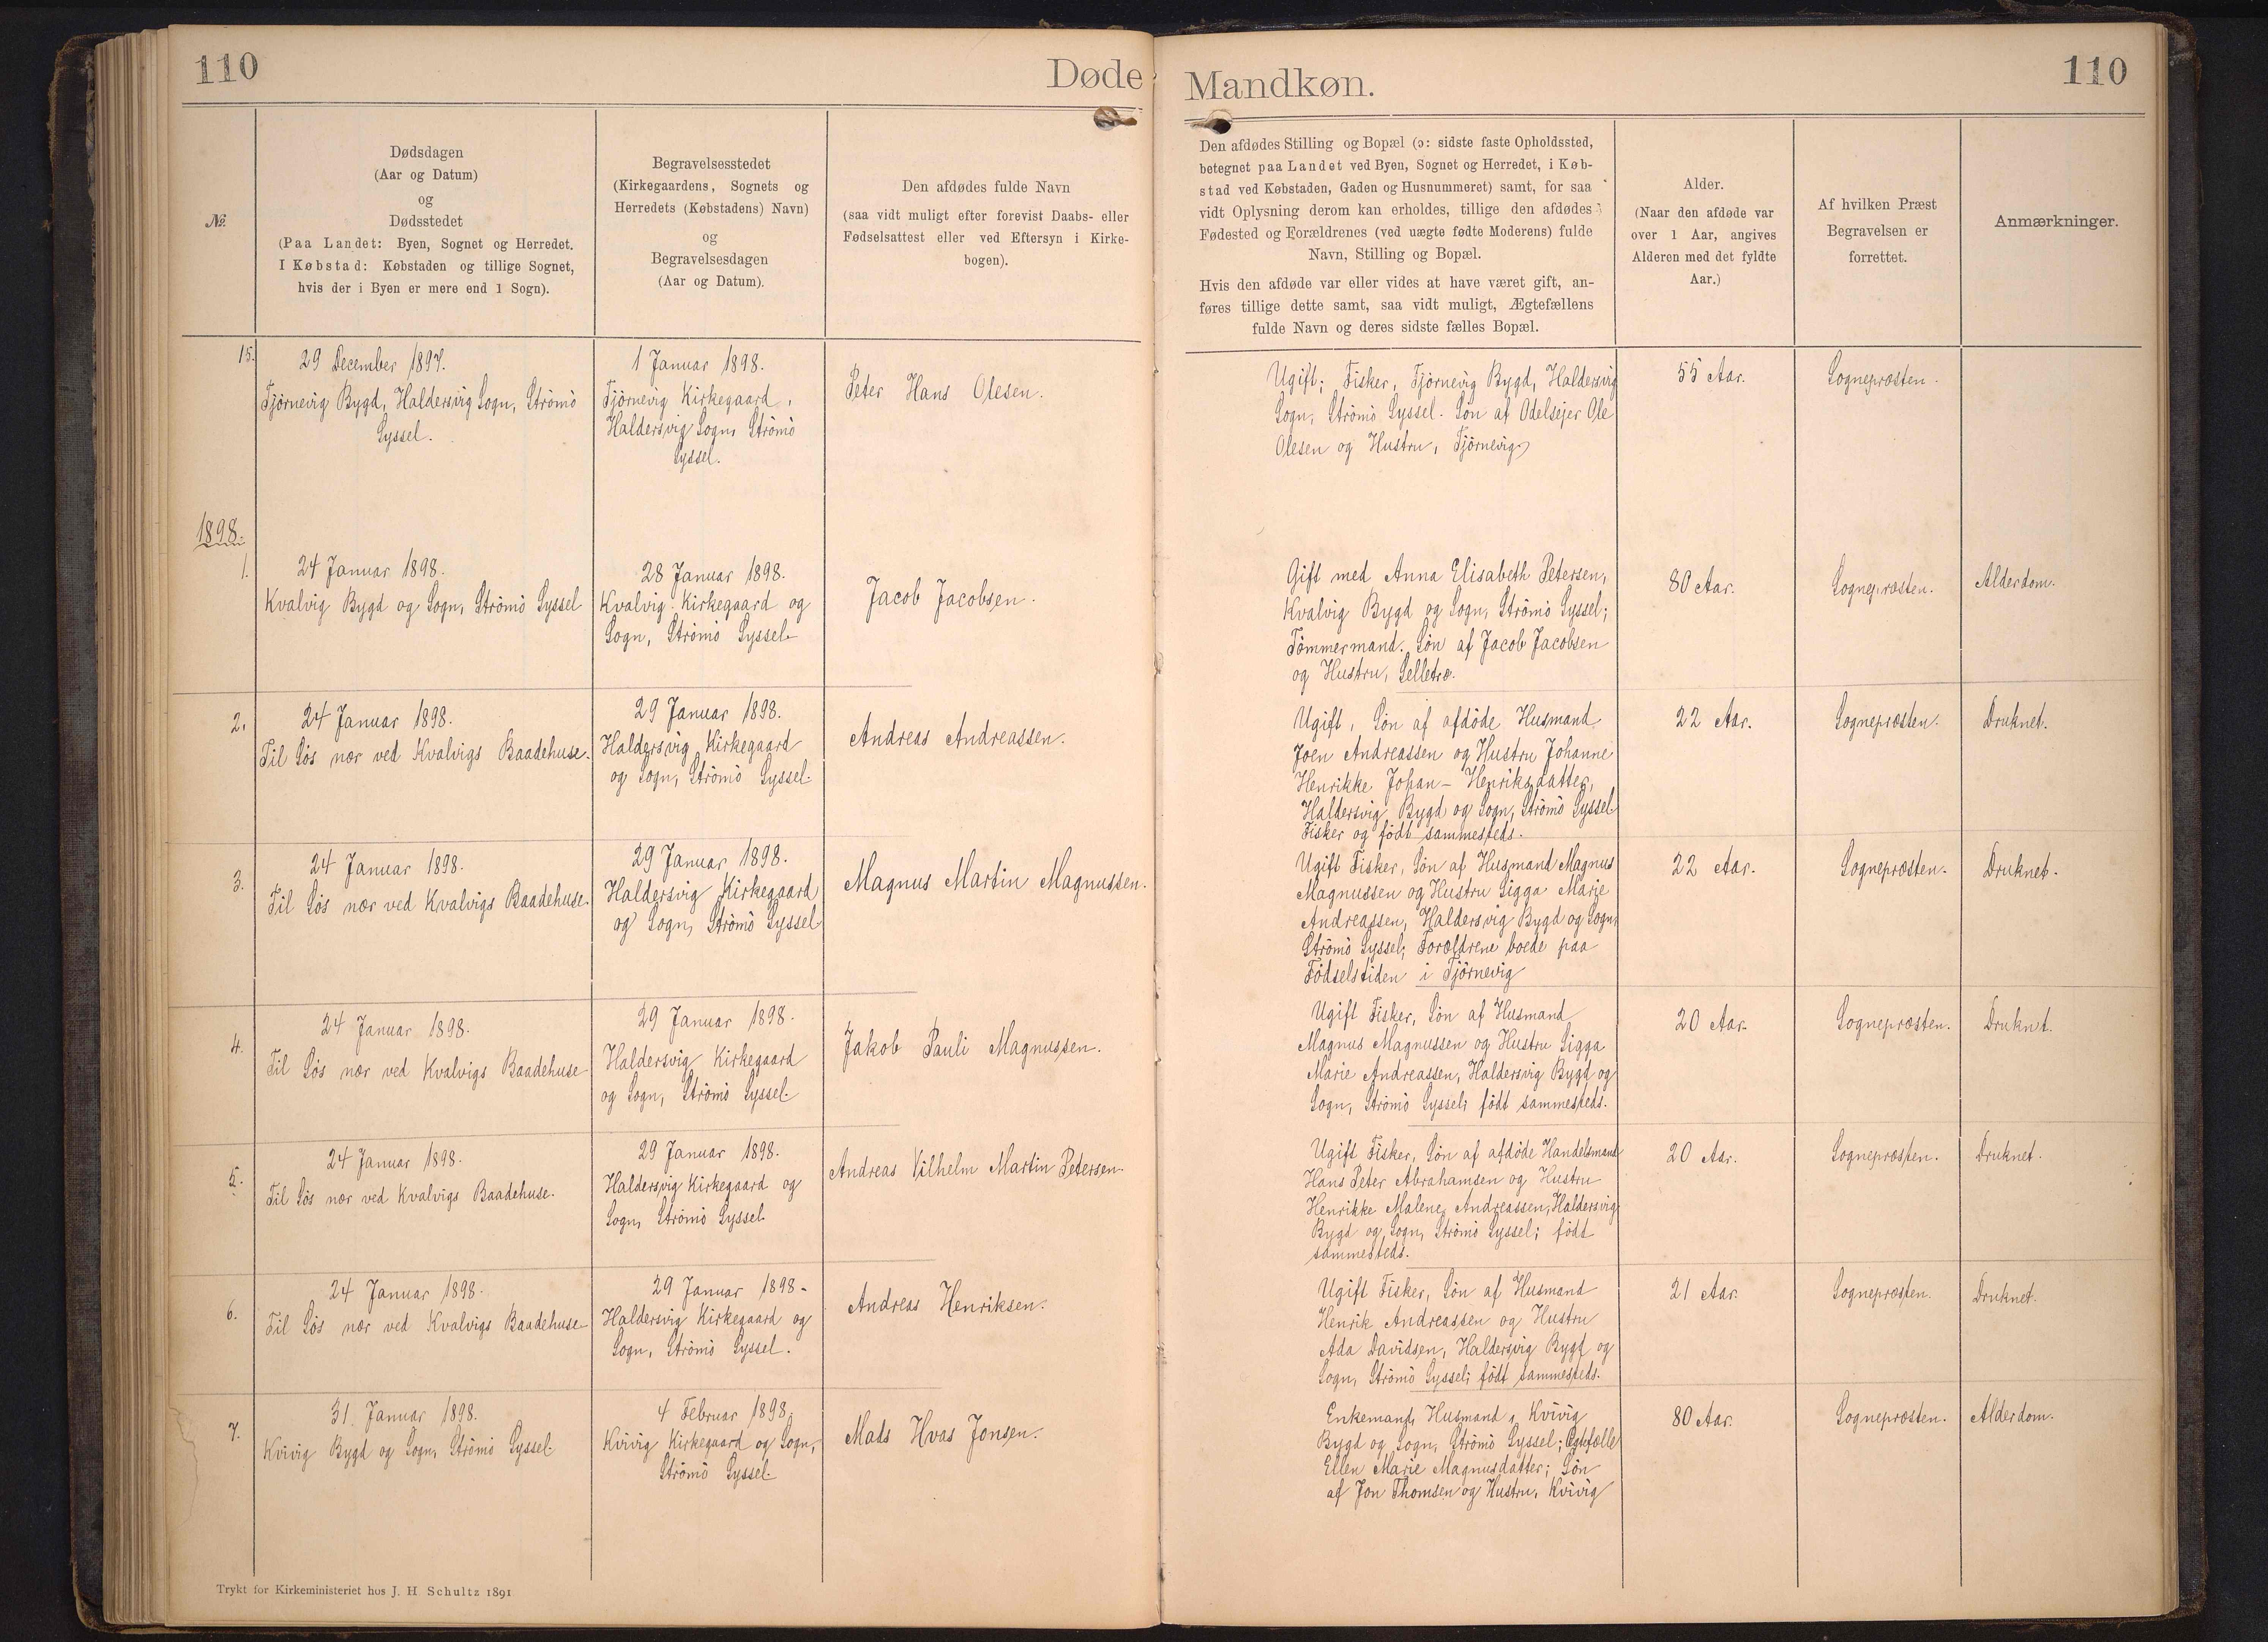 110
Døde
Mandkøn.
110
№.
Dødsdagen
(Aar og Datum)
og
Dødsstedet
(Paa Landet: Byen, Sognet og Herredet.
I Købstad: Købstaden og tillige Sognet,
hvis der i Byen er mere end 1 Sogn).
Begravelsesstedet
(Kirkegaardens, Sognets og
Herredets (Købstadens) Navn)
og
Begravelsesdagen
(Aar og Datum).
Den afdødes fulde Navn
(saa vidt muligt efter forevist Daabs- eller
Fødselsattest eller ved Eftersyn i Kirke-
bogen).
Den afdødes Stilling og Bopæl (ɔ: sidste faste Opholdssted,
betegnet paa Landet ved Byen, Sognet og Herredet, i Køb-
stad ved Købstaden, Gaden og Husnummeret) samt, for saa
vidt Oplysning derom kan erholdes, tillige den afdødes
Fødested og Forældrenes (ved uægte fødte Moderens) fulde
Navn, Stilling og Bopæl.
Hvis den afdøde var eller vides at have været gift, an-
føres tillige dette samt, saa vidt muligt, Ægtefællens
fulde Navn og deres sidste fælles Bopæl.
Alder.
(Naar den afdøde var
over 1 Aar, angives
Alderen med det fyldte
Aar.)
Af hvilken Præst
Begravelsen er
forrettet.
Anmærkninger.
15.
29 December 1897.
Tjörnevig Bygd, Haldersvig Sogn, Strömö
Syssel.
1 Januar 1898.
Tjörnevig Kirkegaard,
Haldersvig Sogn, Strömö
Syssel.
Peter Hans Olesen.
Ugift; Fisker, Tjörnevig Bygd, Haldersvig
Sogn, Strömö Syssel. Sön af Odelsejer Ole
Olesen og Hustru, Tjörnevig
55 Aar.
Sognepræsten.
1898.
1.
24 Januar 1898.
Kvalvig Bygd og Sogn, Strömö Syssel
28 Januar 1898.
Kvalvig Kirkegaard og
Sogn, Strömö Syssel.
Jacob Jacobsen.
Gift med Anna Elisabeth Petersen,
Kvalvig Bygd og Sogn, Strömö Syssel;
Tömmermand. Sön af Jacob Jacobsen
og Hustru, Selletræ.
80 Aar.
Sognepræsten.
Alderdom.
2.
24 Januar 1898.
Til Sös nær ved Kvalvigs Baadehuse.
29 Januar 1898.
Haldersvig Kirkegaard
og Sogn, Strömö Syssel.
Andreas Andreassen.
Ugift, Sön af afdöde Husmand
Joen Andreassen og Hustru Johanne
Henrikke Johan-Henriksdatter,
Haldersvig Bygd og Sogn, Strömö Syssel.
Fisker og födt sammesteds.
22 Aar.
Sognepræsten.
Druknet.
3.
24 Januar 1898.
Til Sös nær ved Kvalvigs Baadehuse.
29 Januar 1898.
Haldersvig Kirkegaard
og Sogn, Strömö Syssel
Magnus Martin Magnussen.
Ugift Fisker, Sön af Husmand Magnus
Magnussen og Hustru Sigga Marie
Andreassen, Haldersvig Bygd og Sogn,
Strömö Syssel; Forældrene boede paa
Födselstiden i Tjörnevig
22 Aar.
Sognepræsten.
Druknet.
4.
24 Januar 1898.
Til Sös nær ved Kvalvigs Baadehuse
29 Januar 1898.
Haldersvig Kirkegaard
og Sogn, Strömö Syssel.
Jakob Pauli Magnussen.
Ugift Fisker, Sön af Husmand
Magnus Magnussen og Hustru Sigga
Marie Andreassen, Haldersvig Bygd og
Sogn, Strömö Syssel; födt sammesteds.
20 Aar.
Sognepræsten.
Druknt.
5.
24 Januar 1898.
Til Sös nær ved Kvalvigs Baadehuse.
29 Januar 1898.
Haldersvig Kirkegaard og
Sogn, Strömö Syssel.
Andreas Vilhelm Martin Petersen.
Ugift Fisker, Sön af afdöde Handelsmand
Hans Peter Abrahamsen og Hustru
Henrikke Malene Andreassen, Haldersvig
Bygd og Sogn, Strömö Syssel; födt
sammesteds.
20 Aar.
Sognepræsten.
Druknet.
6.
24 Januar 1898.
Til Sös nær ved Kvalvigs Baadehuse
29 Januar 1898-
Haldersvig Kirkegaard og
Sogn, Strömö Syssel.
Andreas Henriksen.
Ugift Fisker, Sön af Husmand
Henrik Andreassen og Hustru
Ada Davidsen, Haldersvig Bygd og
Sogn, Strömö Syssel; födt sammesteds.
21 Aar.
Sognepræsten.
Druknet.
7.
31 Januar 1898.
Kvivig Bygd og Sogn, Strömö Syssel.
4 Februar 1898.
Kvivig Kirkegaard og Sogn,
Strömö Syssel.
Mads Hvas Jonsen.
Enkemand, Husmand i Kvivig
Bygd og Sogn, Strömö Syssel; Egtefælle
Ellen Marie Magnusdatter; Sön
af Jon Thomsen og Hustru, Kvivig
80 Aar.
Sognepræsten.
Alderdom.
Trykt for Kirkeministeriet hos J. H Schultz 1891